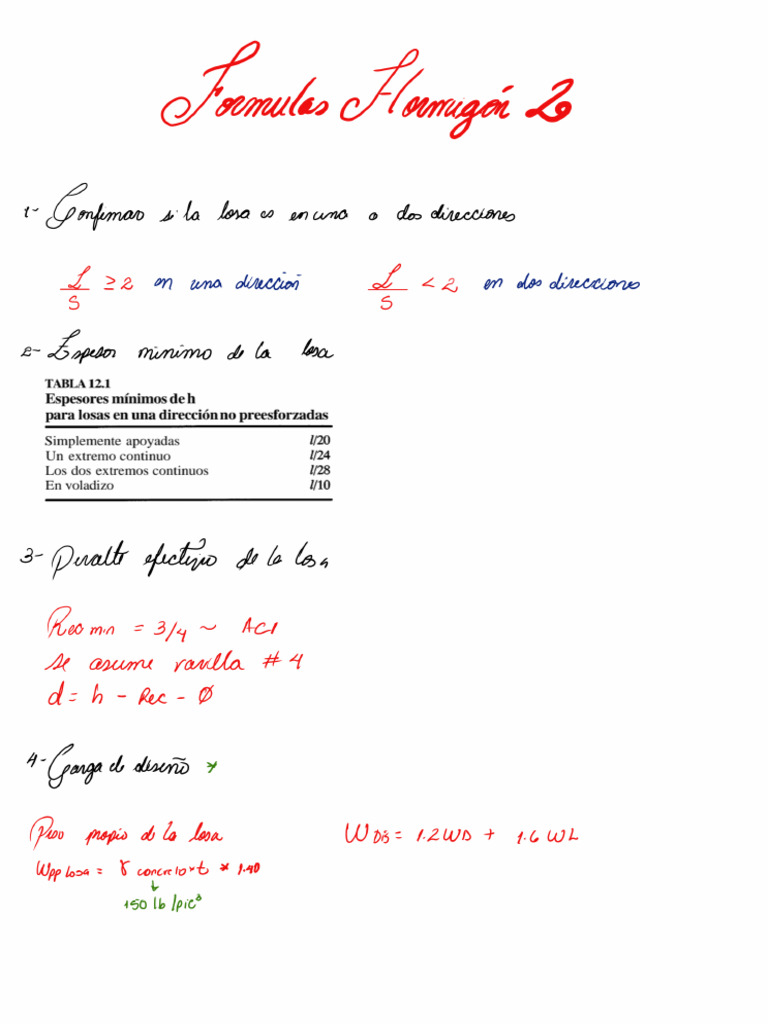 Formulas Hormigón 2
1- Confirmar si la losa es en una o dos direcciones
L/S ≥ 2 en una dirección L/S < 2 en dos direcciones
2- Espesor minimo de la losa
TABLA 12.1
Espesores mínimos de h
para losas en una dirección no preesforzadas
Simplemente apoyadas l/20
Un extremo continuo l/24
Los dos extremos continuos l/28
En voladizo l/10
3- Peralte efectivo de la losa
Rec min = 3/4 ~ ACI
se asume varilla # 4
d = h - Rec - Ø
4- Carga de diseño *
Peso propio de la losa WDis = 1.2WD + 1.6 WL
Wpp losa = γ concreto * t * 1.40
↓
150 lb/pie³